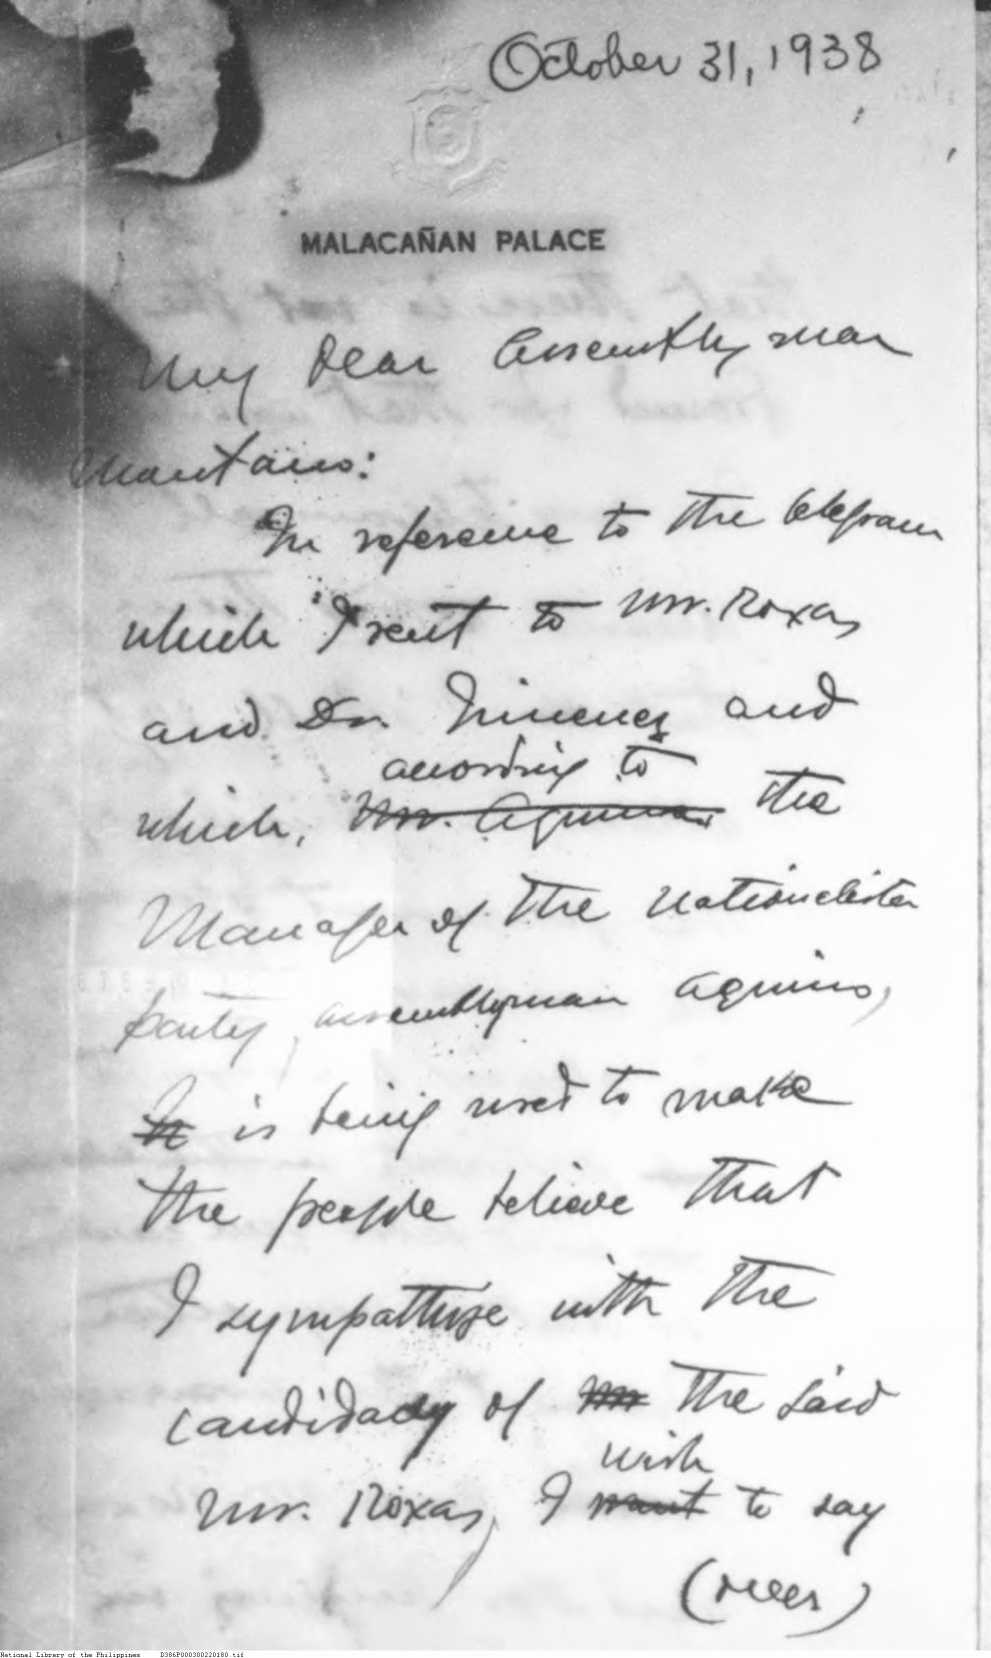 October 31, 1938
MALACAÑAN PALACE
My Dear Assemblyman
Montano:
In reference to the telegram
which I sent to Mr. Roxas
and Dr. Jimenez and
according to
which, Mr. Aquino, the
Manager of the Nationalista
party, Assemblyman Aquino,
is being used to make
the people believe that
I sympathize with the
candidacy of the said
wish
Mr. Roxas, I want to say
(over)
National Library of the Philippines D386P000300220180.tif